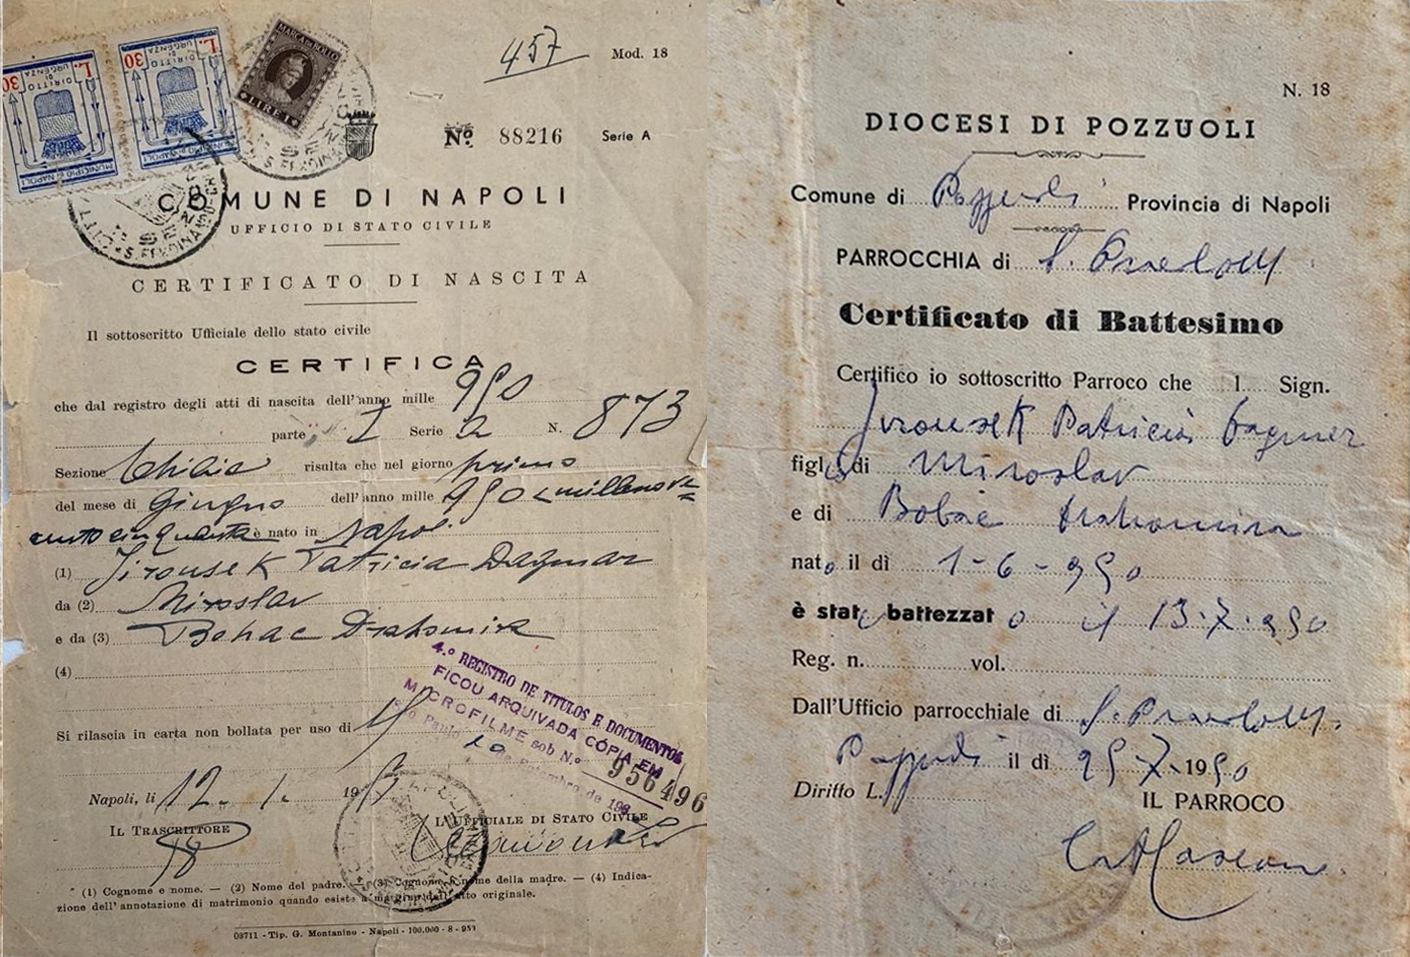 457
Mod. 18
L. 30
DIRITTO DI URGENZA
MUNICIPIO DI NAPOLI
L. 30
DIRITTO DI URGENZA
MUNICIPIO DI NAPOLI
MARCA DA BOLLO
LIRE 1
Nº 88216 Serie A
COMUNE DI NAPOLI
UFFICIO DI STATO CIVILE
CERTIFICATO DI NASCITA
Il sottoscritto Ufficiale dello stato civile
CERTIFICA
che dal registro degli atti di nascita dell'anno mille 950
parte I Serie a N. 873
Sezione Chiaia risulta che nel giorno primo
del mese di Giugno dell'anno mille 950 (millenove=
centocinquanta è nato in Napoli
(1) Jirousek Patricia Dagmar
da (2) Miroslav
e da (3) Bohac Drahomira
(4)
4.º REGISTRO DE TITULOS E DOCUMENTOS
FICOU ARQUIVADA CÓPIA EM
MICROFILME sob N.º 956496
São Paulo de Setembro de 198
Si rilascia in carta non bollata per uso di
Napoli, li 12. 1. 195
IL TRASCRITTORE
L'UFFICIALE DI STATO CIVILE
(1) Cognome e nome. — (2) Nome del padre. — (3) Cognome e nome della madre. — (4) Indica-
zione dell'annotazione di matrimonio quando esiste a margine dell'atto originale.
03711 - Tip. G. Montanino - Napoli - 100.000 - 8 - 953
N. 18
DIOCESI DI POZZUOLI
Comune di Pozzuoli Provincia di Napoli
PARROCCHIA di S.
Certificato di Battesimo
Certifico io sottoscritto Parroco che l Sign.
Jirousek Patricia Dagmar
figlo di Miroslav
e di Bohac Drahomira
nato il dì 1-6-950
è stato battezzato il 13.7.950
Reg. n. vol.
Dall'Ufficio parrocchiale di S.
Pozzuoli il dì 25-7-1950
Diritto L.
IL PARROCO